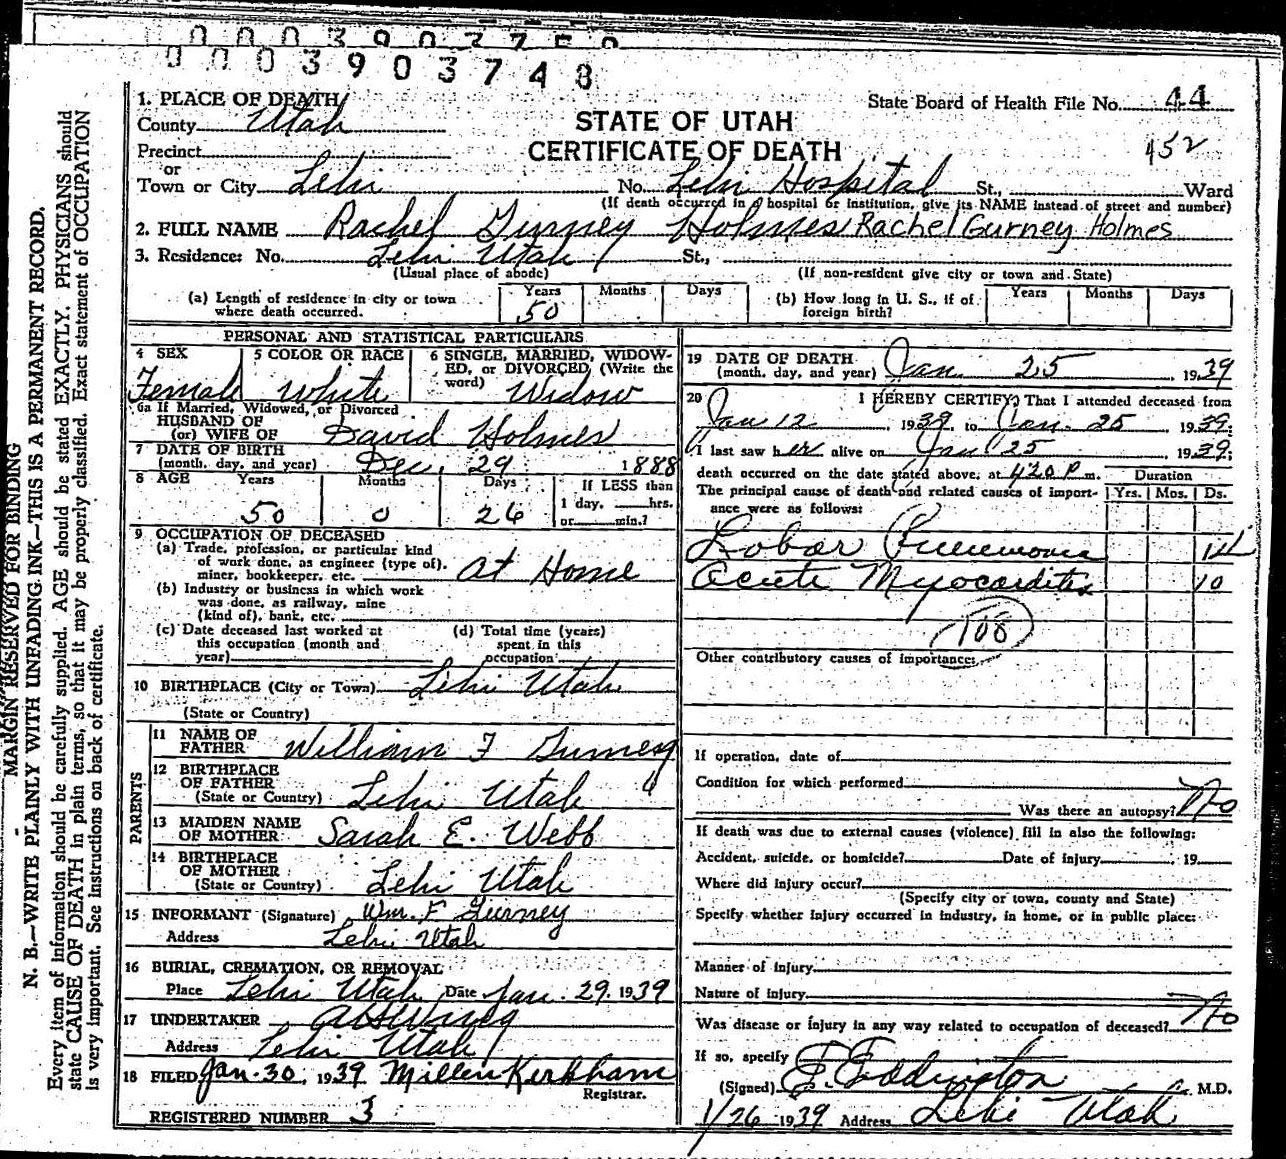 0003903748
1. PLACE OF DEATH
State Board of Health File No. 44
County Utah
STATE OF UTAH
CERTIFICATE OF DEATH
452
Precinct
or
Town or City Lehi No. Lehi Hospital St., Ward
(If death occurred in a hospital or institution, give its NAME instead of street and number)
2. FULL NAME Rachel Gurney Holmes Rachel Gurney Holmes
3. Residence: No. Lehi Utah St.,
(Usual place of abode) (If non-resident give city or town and State)
(a) Length of residence in city or town where death occurred. Years 50 Months Days
(b) How long in U. S., if of foreign birth? Years Months Days
PERSONAL AND STATISTICAL PARTICULARS
4 SEX Female
5 COLOR OR RACE White
6 SINGLE, MARRIED, WIDOW-
ED, or DIVORCED (Write the
word) Widow
6a If Married, Widowed, or Divorced
HUSBAND OF
(or) WIFE OF David Holmes
7 DATE OF BIRTH
(month, day, and year) Dec. 29 1888
8 AGE Years 50 Months 0 Days 26
If LESS than
1 day, hrs.
or min.?
9 OCCUPATION OF DECEASED
(a) Trade, profession, or particular kind
of work done, as engineer (type of),
miner, bookkeeper, etc. At Home
(b) Industry or business in which work
was done, as railway, mine
(kind of), bank, etc.
(c) Date deceased last worked at
this occupation (month and
year)
(d) Total time (years)
spent in this
occupation
10 BIRTHPLACE (City or Town) Lehi Utah
(State or Country)
PARENTS
11 NAME OF
FATHER William F Gurney
12 BIRTHPLACE
OF FATHER
(State or Country) Lehi Utah
13 MAIDEN NAME
OF MOTHER Sarah E. Webb
14 BIRTHPLACE
OF MOTHER
(State or Country) Lehi Utah
15 INFORMANT (Signature) Wm. F Gurney
Address Lehi Utah
16 BURIAL, CREMATION, OR REMOVAL
Place Lehi Utah Date Jan. 29. 1939
17 UNDERTAKER
Address Lehi Utah
18 FILED Jan. 30, 1939 Millen Kirkham
Registrar.
REGISTERED NUMBER 3
19 DATE OF DEATH
(month, day, and year) Jan 25, 1939
20 I HEREBY CERTIFY, That I attended deceased from
Jan 12, 1939, to Jan. 25 1939;
I last saw her alive on Jan 25, 1939;
death occurred on the date stated above, at 4 20 P m. Duration
The principal cause of death and related causes of import- Yrs. Mos. Ds.
ance were as follows:
Lobar Pneumonia 14
Acute Myocarditis 10
108
Other contributory causes of importance:
If operation, date of
Condition for which performed
Was there an autopsy? No
If death was due to external causes (violence) fill in also the following:
Accident, suicide, or homicide? Date of injury 19
Where did injury occur?
(Specify city or town, county and State)
Specify whether injury occurred in industry, in home, or in public place:
Manner of injury
Nature of injury
Was disease or injury in any way related to occupation of deceased? No
If so, specify
(Signed) E. Eddington M.D.
1/26 1939 Address Lehi Utah
MARGIN RESERVED FOR BINDING
N. B.—WRITE PLAINLY WITH UNFADING INK—THIS IS A PERMANENT RECORD.
Every item of information should be carefully supplied. AGE should be stated EXACTLY. PHYSICIANS should
state CAUSE OF DEATH in plain terms, so that it may be properly classified. Exact statement of OCCUPATION
is very important. See instructions on back of certificate.